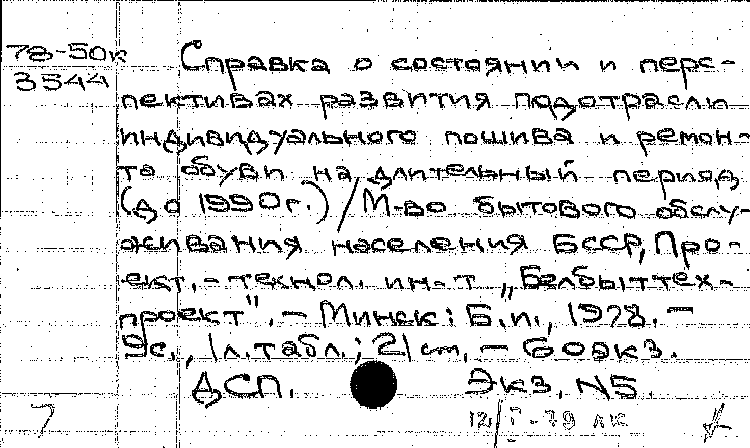 78-50к
3544
Справка о состоянии и перс-
пективах развития подотрасли
индивидуального пошива и ремон-
та обуви на длительный период
(до 1990г.) / М-во бытового обслу-
живания населения БССР, Про-
ект.-технол. ин-т "Белбыттех-
проект". - Минск: Б.и., 1978. -
9с., 1л. табл.; 21 cm. - 60экз.
ДСП. Экз. N5.
12/I-79 лк